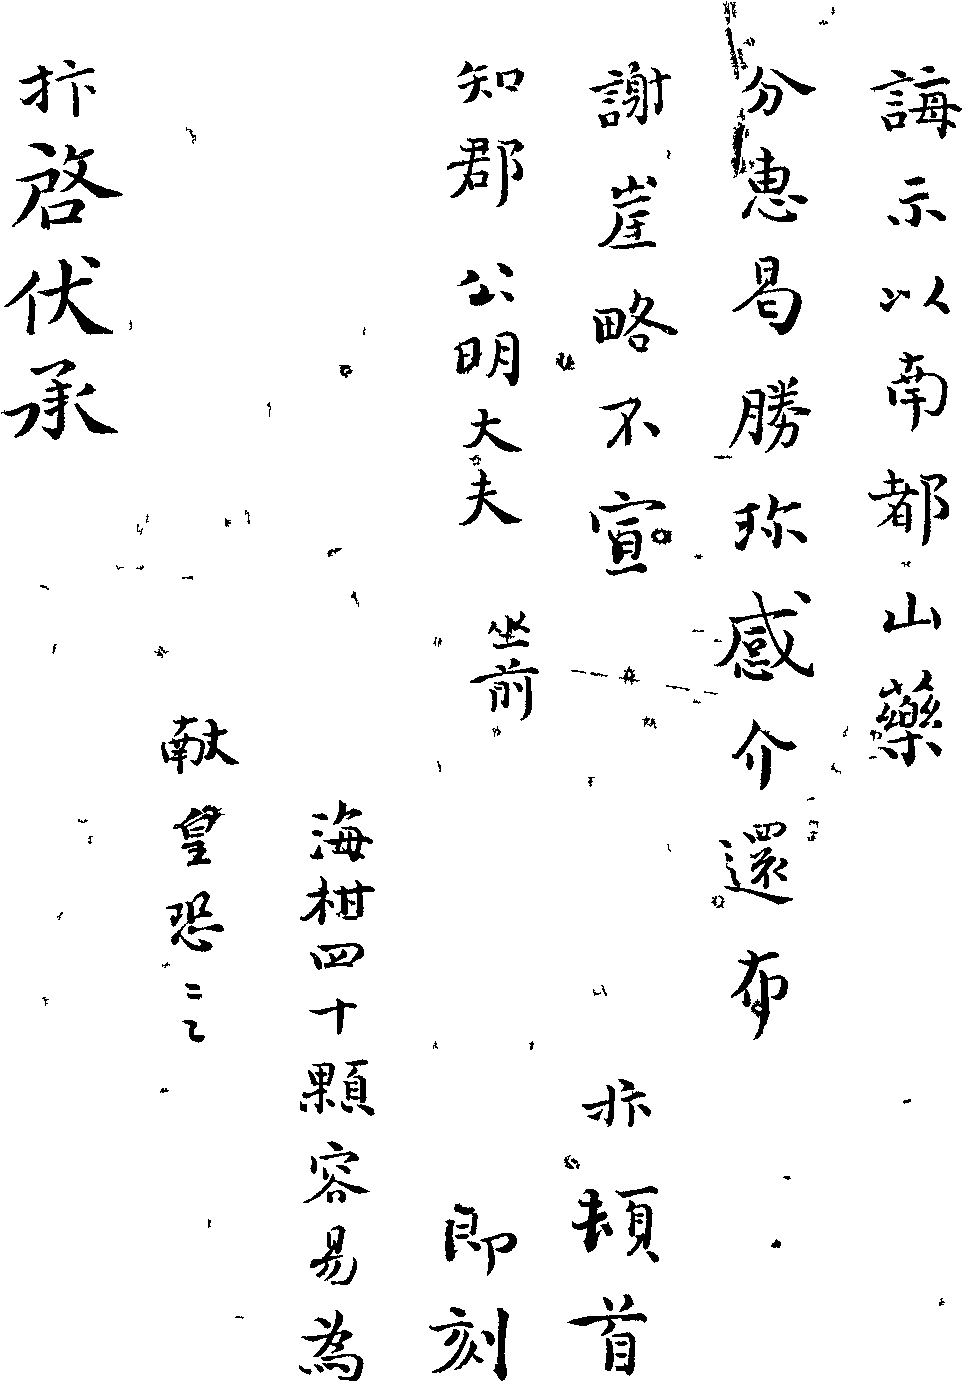 誨示以南都山藥
分惠曷勝珎感介還布
謝崖略不宣
抃頓首
知郡公明大夫 坐前
即刻
海柑四十顆容易為
献皇恐〻〻
抃啓伏承